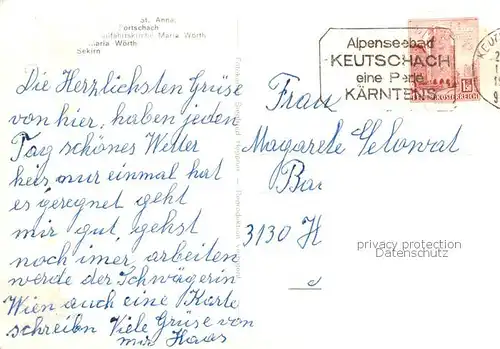 St. Anna,
Pörtschach
Wallfahrtskirche Maria Wörth
Maria Wörth
Sekirn
Alpenseebad
KEUTSCHACH
eine Perle
KÄRNTENS
KEUT
ÖSTERREICH
Die Herzlichsten Grüse
von hier, haben jeden
Tag schönes Wetter
hir, nur einmal hat
es geregnet geht
mir gut, gehst
noch imer arbeiten
werde der Schwägerin
Wien auch eine Karte
schreibn Viele Grüse von
mir Haas
Frau
Magarete Selowat
Ba
3130 H
privacy protection
Datenschutz